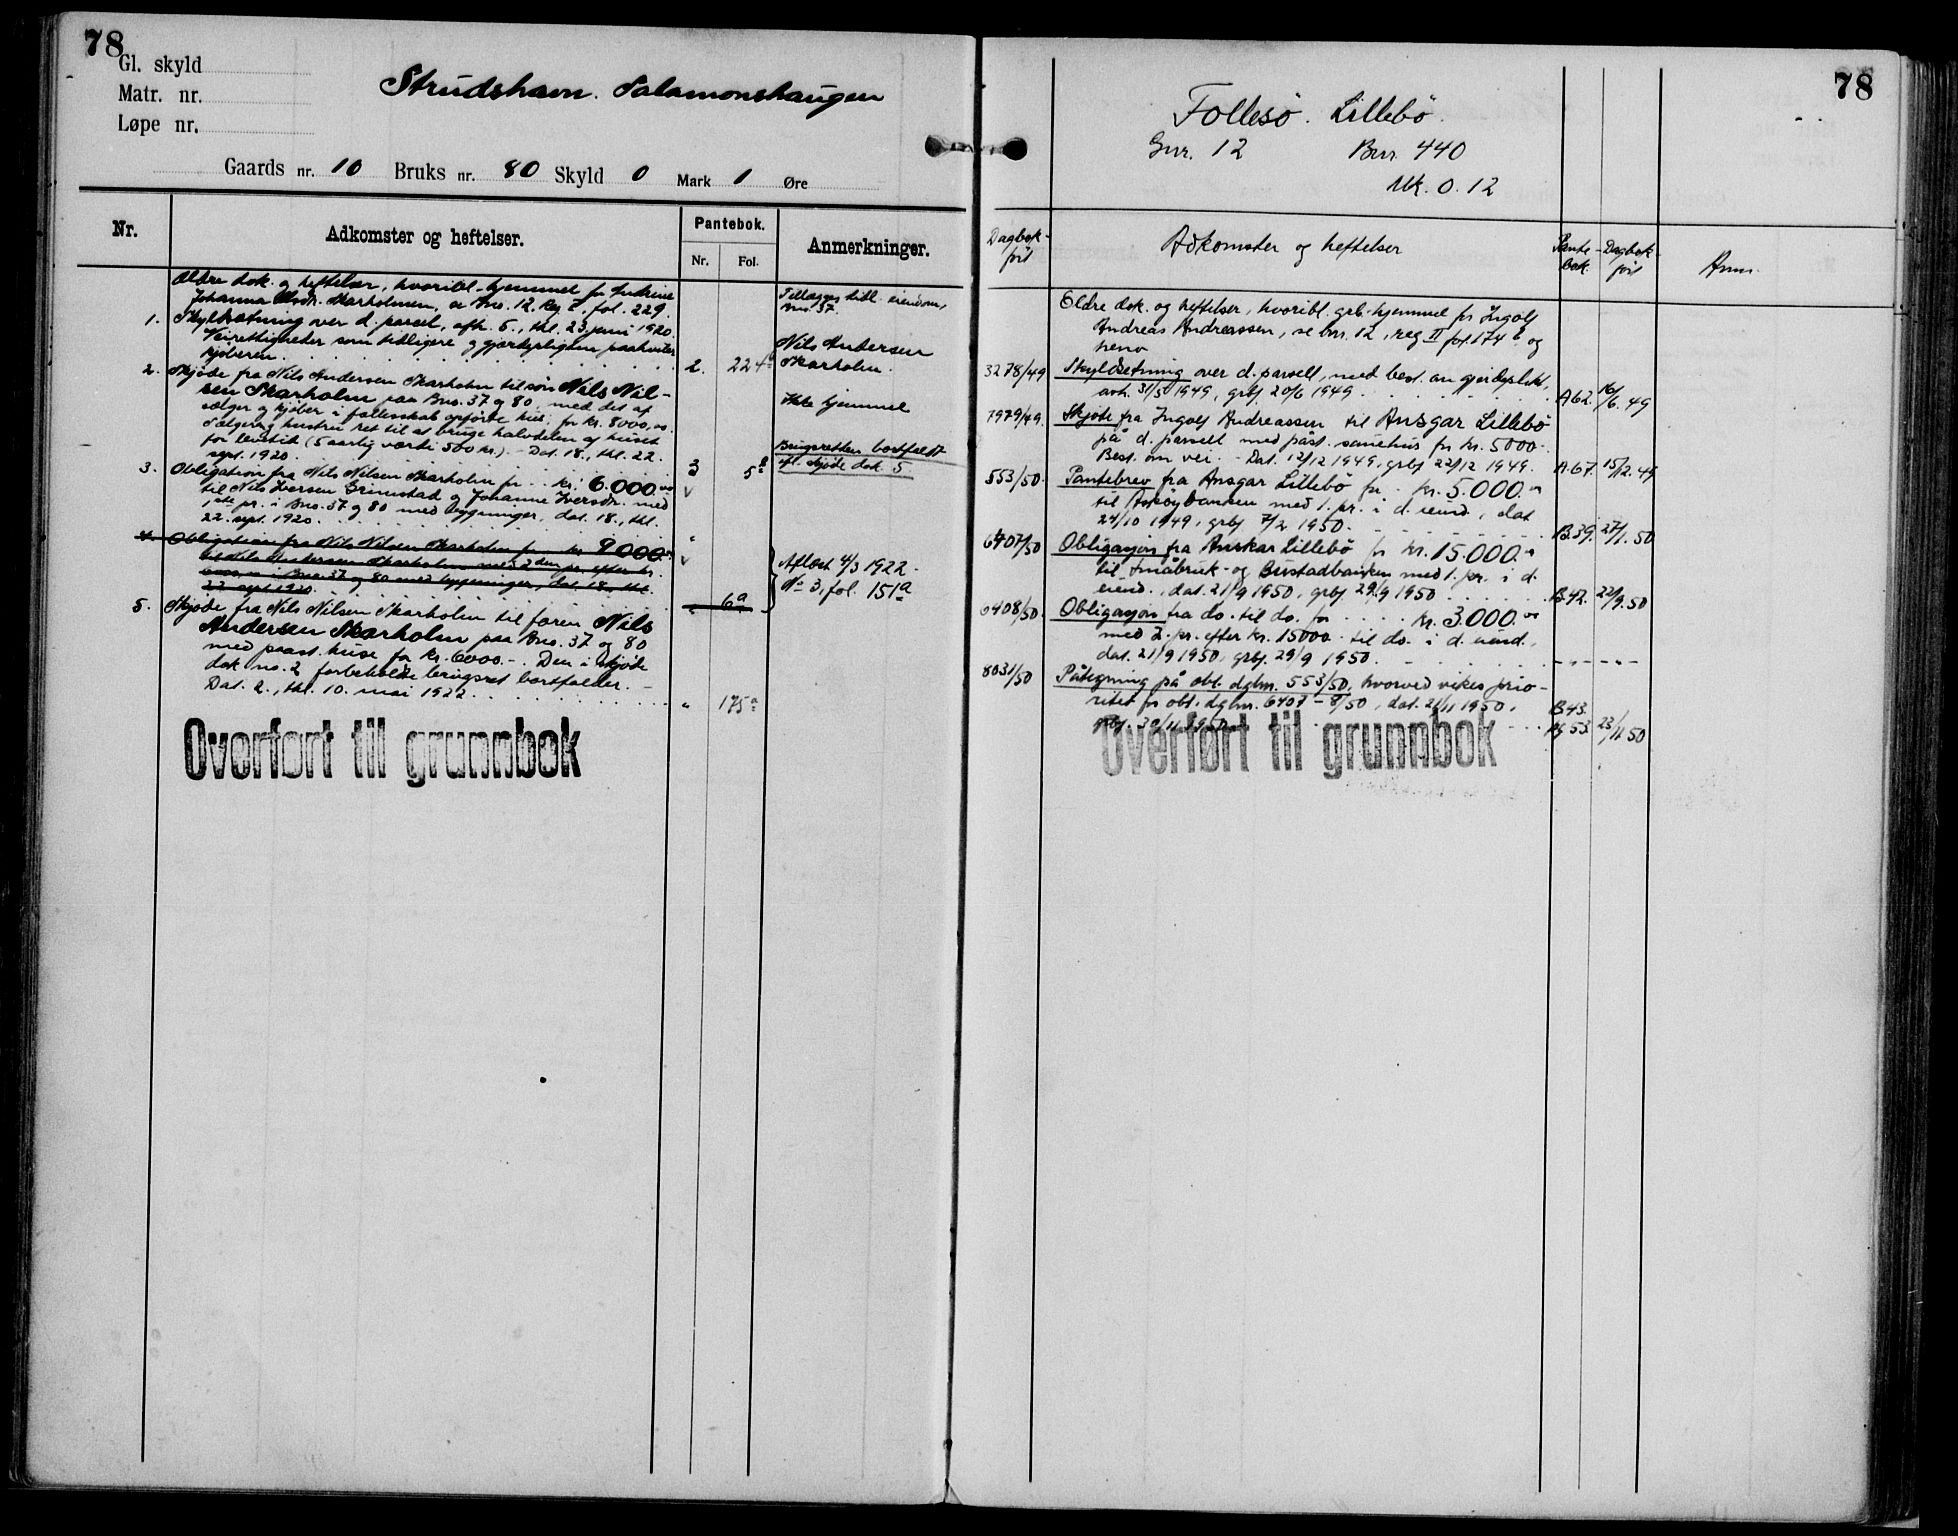 78
Gl. skyld
Matr. nr.
Løpe nr.
Strudshavn. Salamonshaugen
Gaards nr. 10 Bruks nr. 80 Skyld 0 Mark 1 Øre
Nr.
Adkomster og heftelser.
Pantebok.
Nr. Fol.
Anmerkninger.
Ældre dok. og heftelser, hvoribl. hjemmel for Andrine
Johanna Olsdr. Skarholmen, se Bno. 12, Reg I, fol. 229.
Tillægges tidl. eiendom,
Bno. 37.
1. Skyldsætning over d. parcel, afh. 5., thl. 23 juni 1920.
Veirettigheder som tidligere og gjærdepligten paahviler
kjøberen. 2. 224
Nils Andersen
Skarholm.
Ikke hjemmel
2. Skjøde fra Nils Andersen Skarholm til søn Nils Nil-
sen Skarholm paa Bno. 37 og 80, med det af
sælger og kjøber i fællesskab opførte hus, for kr. 8000,00.
Sælger og hustru ret til at bruge halvdelen af huset
for levetid (5 aarlig værdi 500 kr.). - Dat. 18., thl. 22.
sept. 1920. 3 5ª
Brugsretten bortfaldt
ifl. skjøde dok. 5
3. Obligation fra Nils Nilsen Skarholm for kr. 6.000.00
til Nils Iversen Grimstad og Johanne Iversdr. med
1ste pr. i Bno. 37 og 80 med bygninger, dat. 18., thl.
22. sept. 1920.
4. Obligation fra Nils Nilsen Skarholm for kr. 9000.00
til Nils Andersen Skarholm med 2den pr. efter kr.
6000,00 i Bno. 37 og 80 med bygninger, dat. 18., thl.
22 sept 1920. " 6ª
Aflæst 4/3 1922.
No 3, fol. 151ª
5. Skjøde fra Nils Nilsen Skarholm til faren Nils
Andersen Skarholm paa Bno. 37 og 80
med paast. huse for kr. 6000.-. Den i skjøde
dok no. 2 forbeholdte brugsret bortfalder. -
Dat. 2., thl. 10. mai 1922. " 175ª
Overført til grunnbok
78
Follesø. Lillebö.
Gnr. 12 Bnr. 440
Mk. 0.12
Dagbok-
ført
Adkomster og heftelser
Pante-
bok
Dagbok-
ført
Anm.
Eldre dok. og heftelser, hvoribl. grb. hjemmel for Ingolf
Andreas Andreassen, se bnr. 12, reg II fol 174 b og
3278/49 Skyldsetning over d. parsell, med best. om gjerdeplikt,
avh. 31/5 1949, grbf. 20/6 1949. A62. 16/6.49
7979/49. Skjøte fra Ingolf Andreassen til Ansgar Lillebö
på d. parsell med påst. sauehus for kr. 5000.-
Best. om vei. - Dat. 12/12 1949, grbf 22/12 1949. A67. 15/12.49
553/50. Pantebrev fra Ansgar Lillebö for kr. 5.000.00
til Askøybanken med 1. pr. i d. eiend., dat
24/10 1949, grbf 7/2 1950. B39. 27/1.50
6407/50 Obligasjon fra Anskar Lillebö for kr. 15.000.00
til Småbruk- og Bustadbanken med 1. pr. i d.
eiend., dat. 21/9 1950, grbf 29/9 1950 B42. 22/9.50
6408/50. Obligasjon fra do. til do. for kr. 3.000.00
med 2. pr. efter kr. 15000.- til do. i d. eiend.,
dat. 21/9 1950, grbf. 29/9 1950. -"-"-
8031/50 Påtegning på obl. dgbnr. 553/50, hvorved vikes prio-
ritet for obl. dgbnr. 6407 - 8/50, dat. 21/11 1950, B43.
grbf. 30/11 1950. 53 23/11 50
Overført til grunnbok